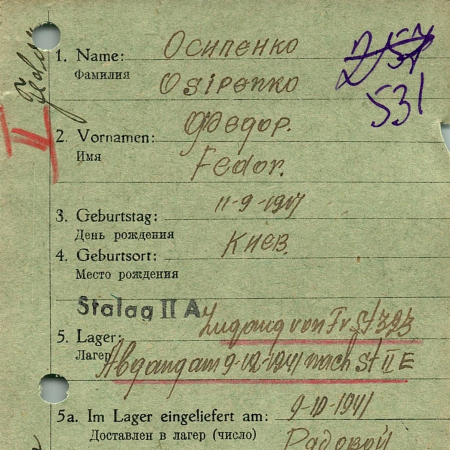 1. Name: Осипенко
Фамилия Osipenko
257
531
II
2. Vornamen: Федор.
Имя Fedor.
3. Geburtstag: 11-9-1917
День рождения
4. Geburtsort: Киев.
Место рождения
Stalag II A
5. Lager: Zugang von Fr. St 323
Лагерь Abgang am 9-12-1941 nach St II E
5a. Im Lager eingeliefert am: 9-10-1941
Доставлен в лагерь (число) Рядовой